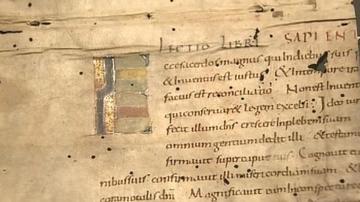 LECTIO LIBRI SAPIEN
Ecce sacerdos magnus qui Indiebus suis
& Inventus est iustus & Intempore ira
factus est reconciliatio Non est Inventus
qui conservar& legem excelsi Ideo iu
fecit illum dns crescere Inplebem suam
omnium gentium dedit illi & testam
firmavit super caput Cagnovit eum
nibus suis conservavit illi misericordiam suam &
coram oculis dni Magnificavit eum Inconspectu